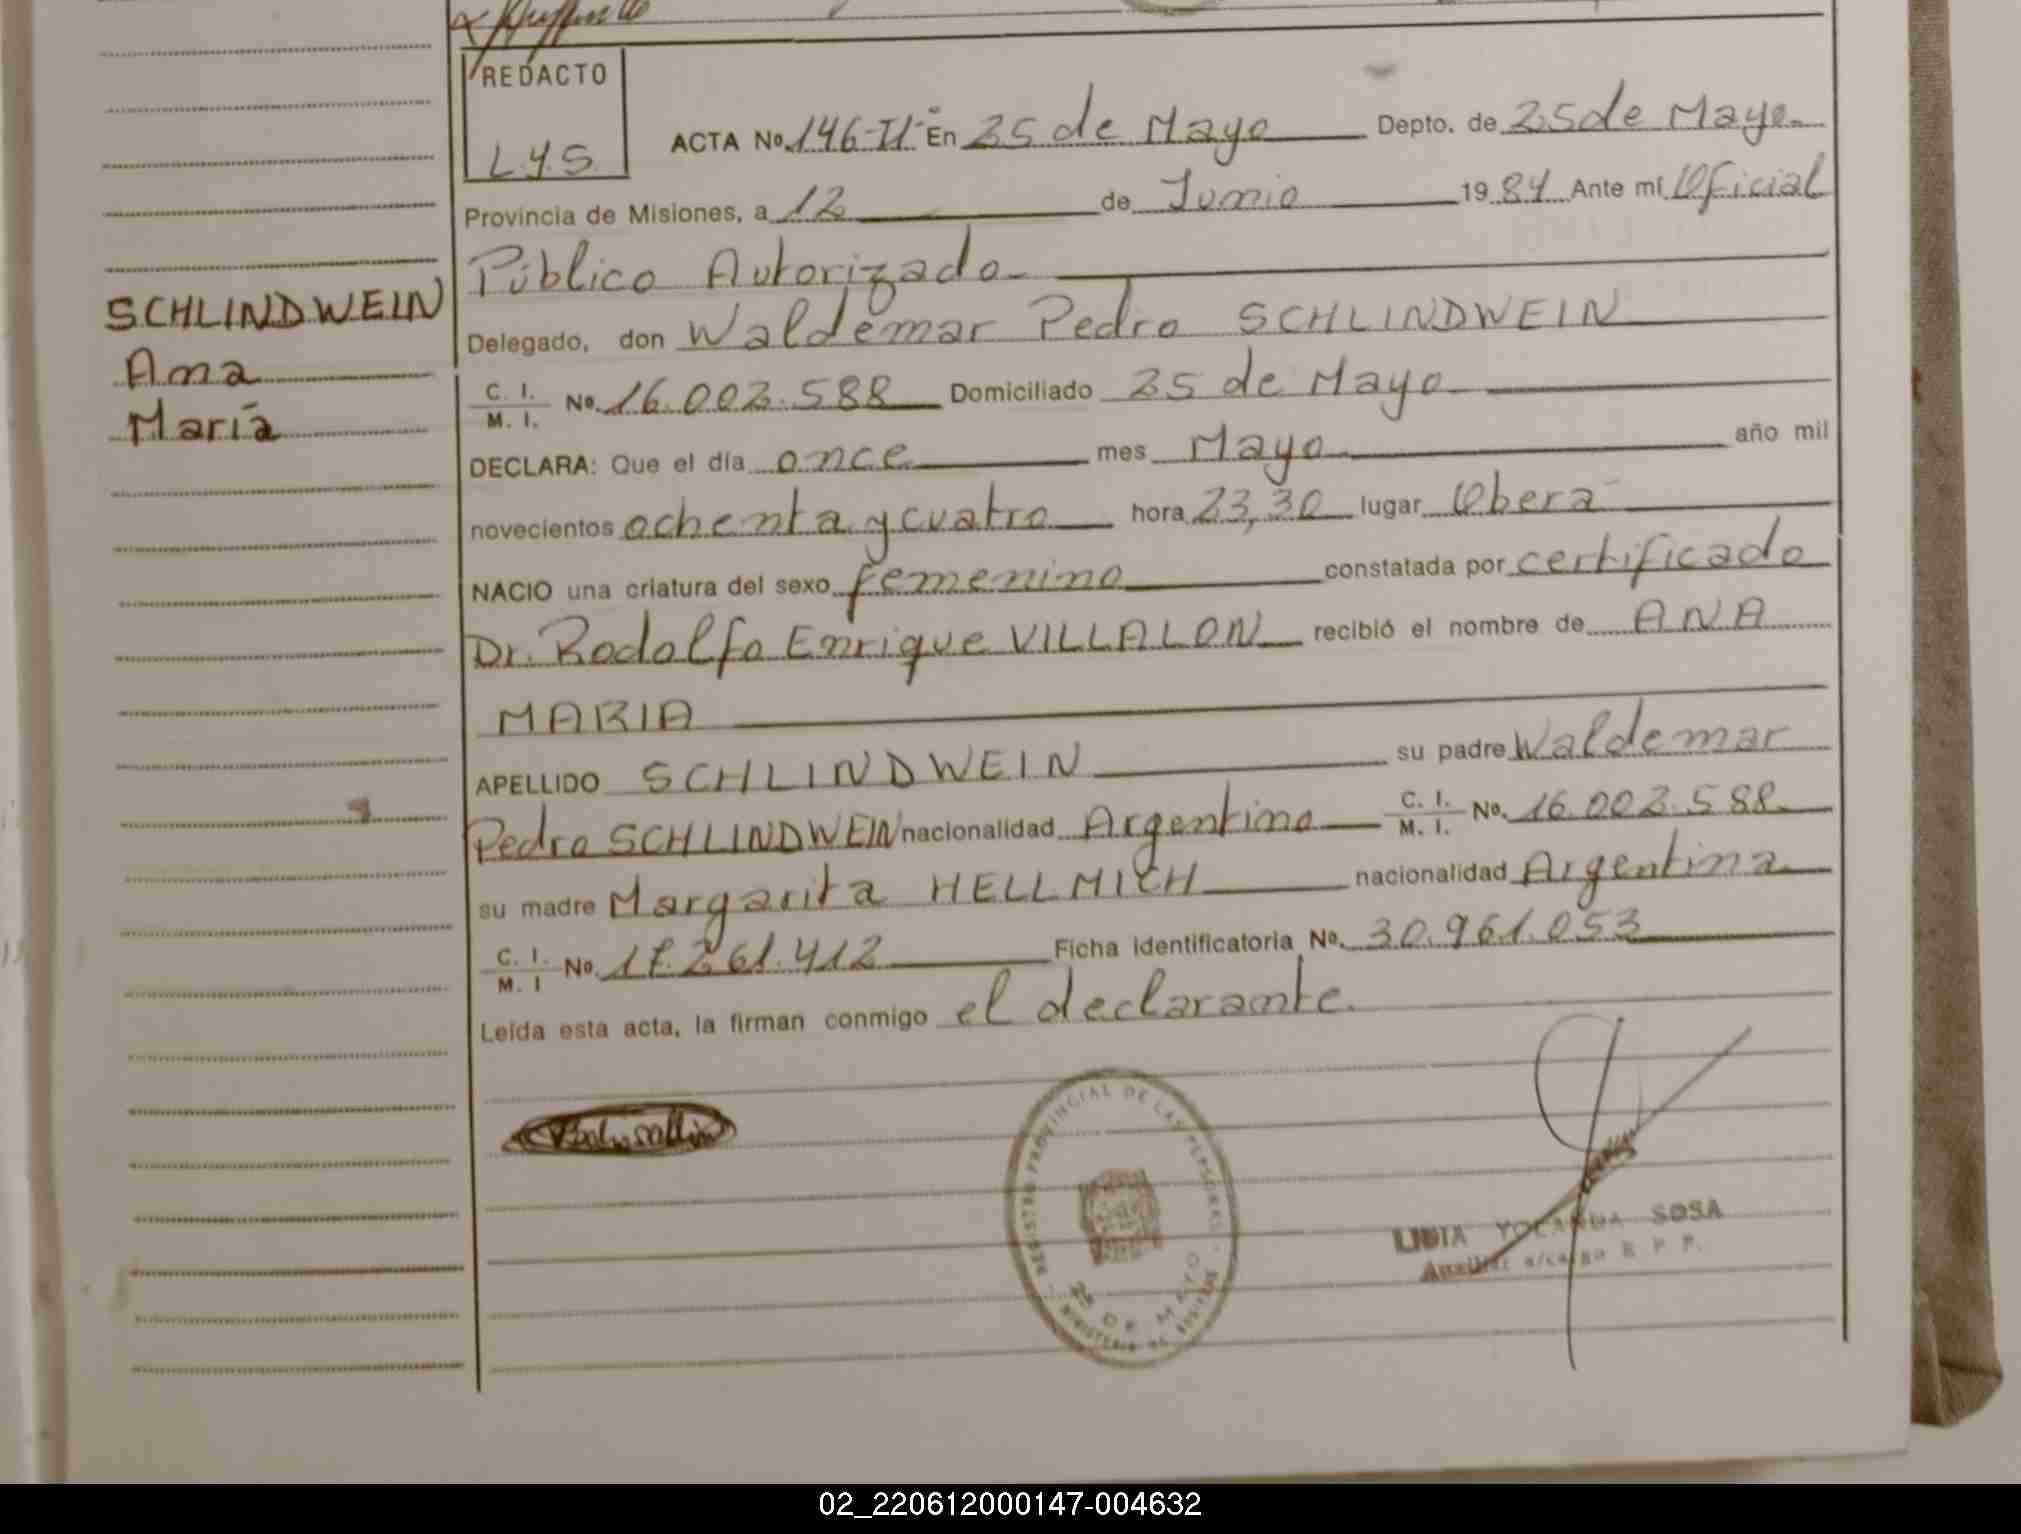 REDACTO
L.Y.S.
ACTA No. 146-II- En 25 de Mayo Depto. de 25 de Mayo.
Provincia de Misiones, a 12 de Junio 1984 Ante mí Oficial
Público Autorizado
SCHLINDWEIN
Ana
María
Delegado, don Waldemar Pedro SCHLINDWEIN
C. I. M. I. No. 16.002.588 Domiciliado 25 de Mayo
DECLARA: Que el día once mes Mayo año mil
novecientos ochenta y cuatro hora 23,30 lugar Oberá
NACIO una criatura del sexo femenino constatada por certificado
Dr. Rodolfo Enrique VILLALON recibió el nombre de ANA
MARIA
APELLIDO SCHLINDWEIN su padre Waldemar
Pedro SCHLINDWEIN nacionalidad Argentino C. I. M. I. No. 16.002.588
su madre Margarita HELLMICH nacionalidad Argentina
C. I. M. I No. 17.261.412 Ficha identificatoria No. 30.961.053
Leída esta acta, la firman conmigo el declarante.
REGISTRO PROVINCIAL DE LAS PERSONAS
25 DE MAYO
MINISTERIO DE
LIDIA YOLANDA SOSA
Auxiliar a/cargo R. P. P.
02_220612000147-004632